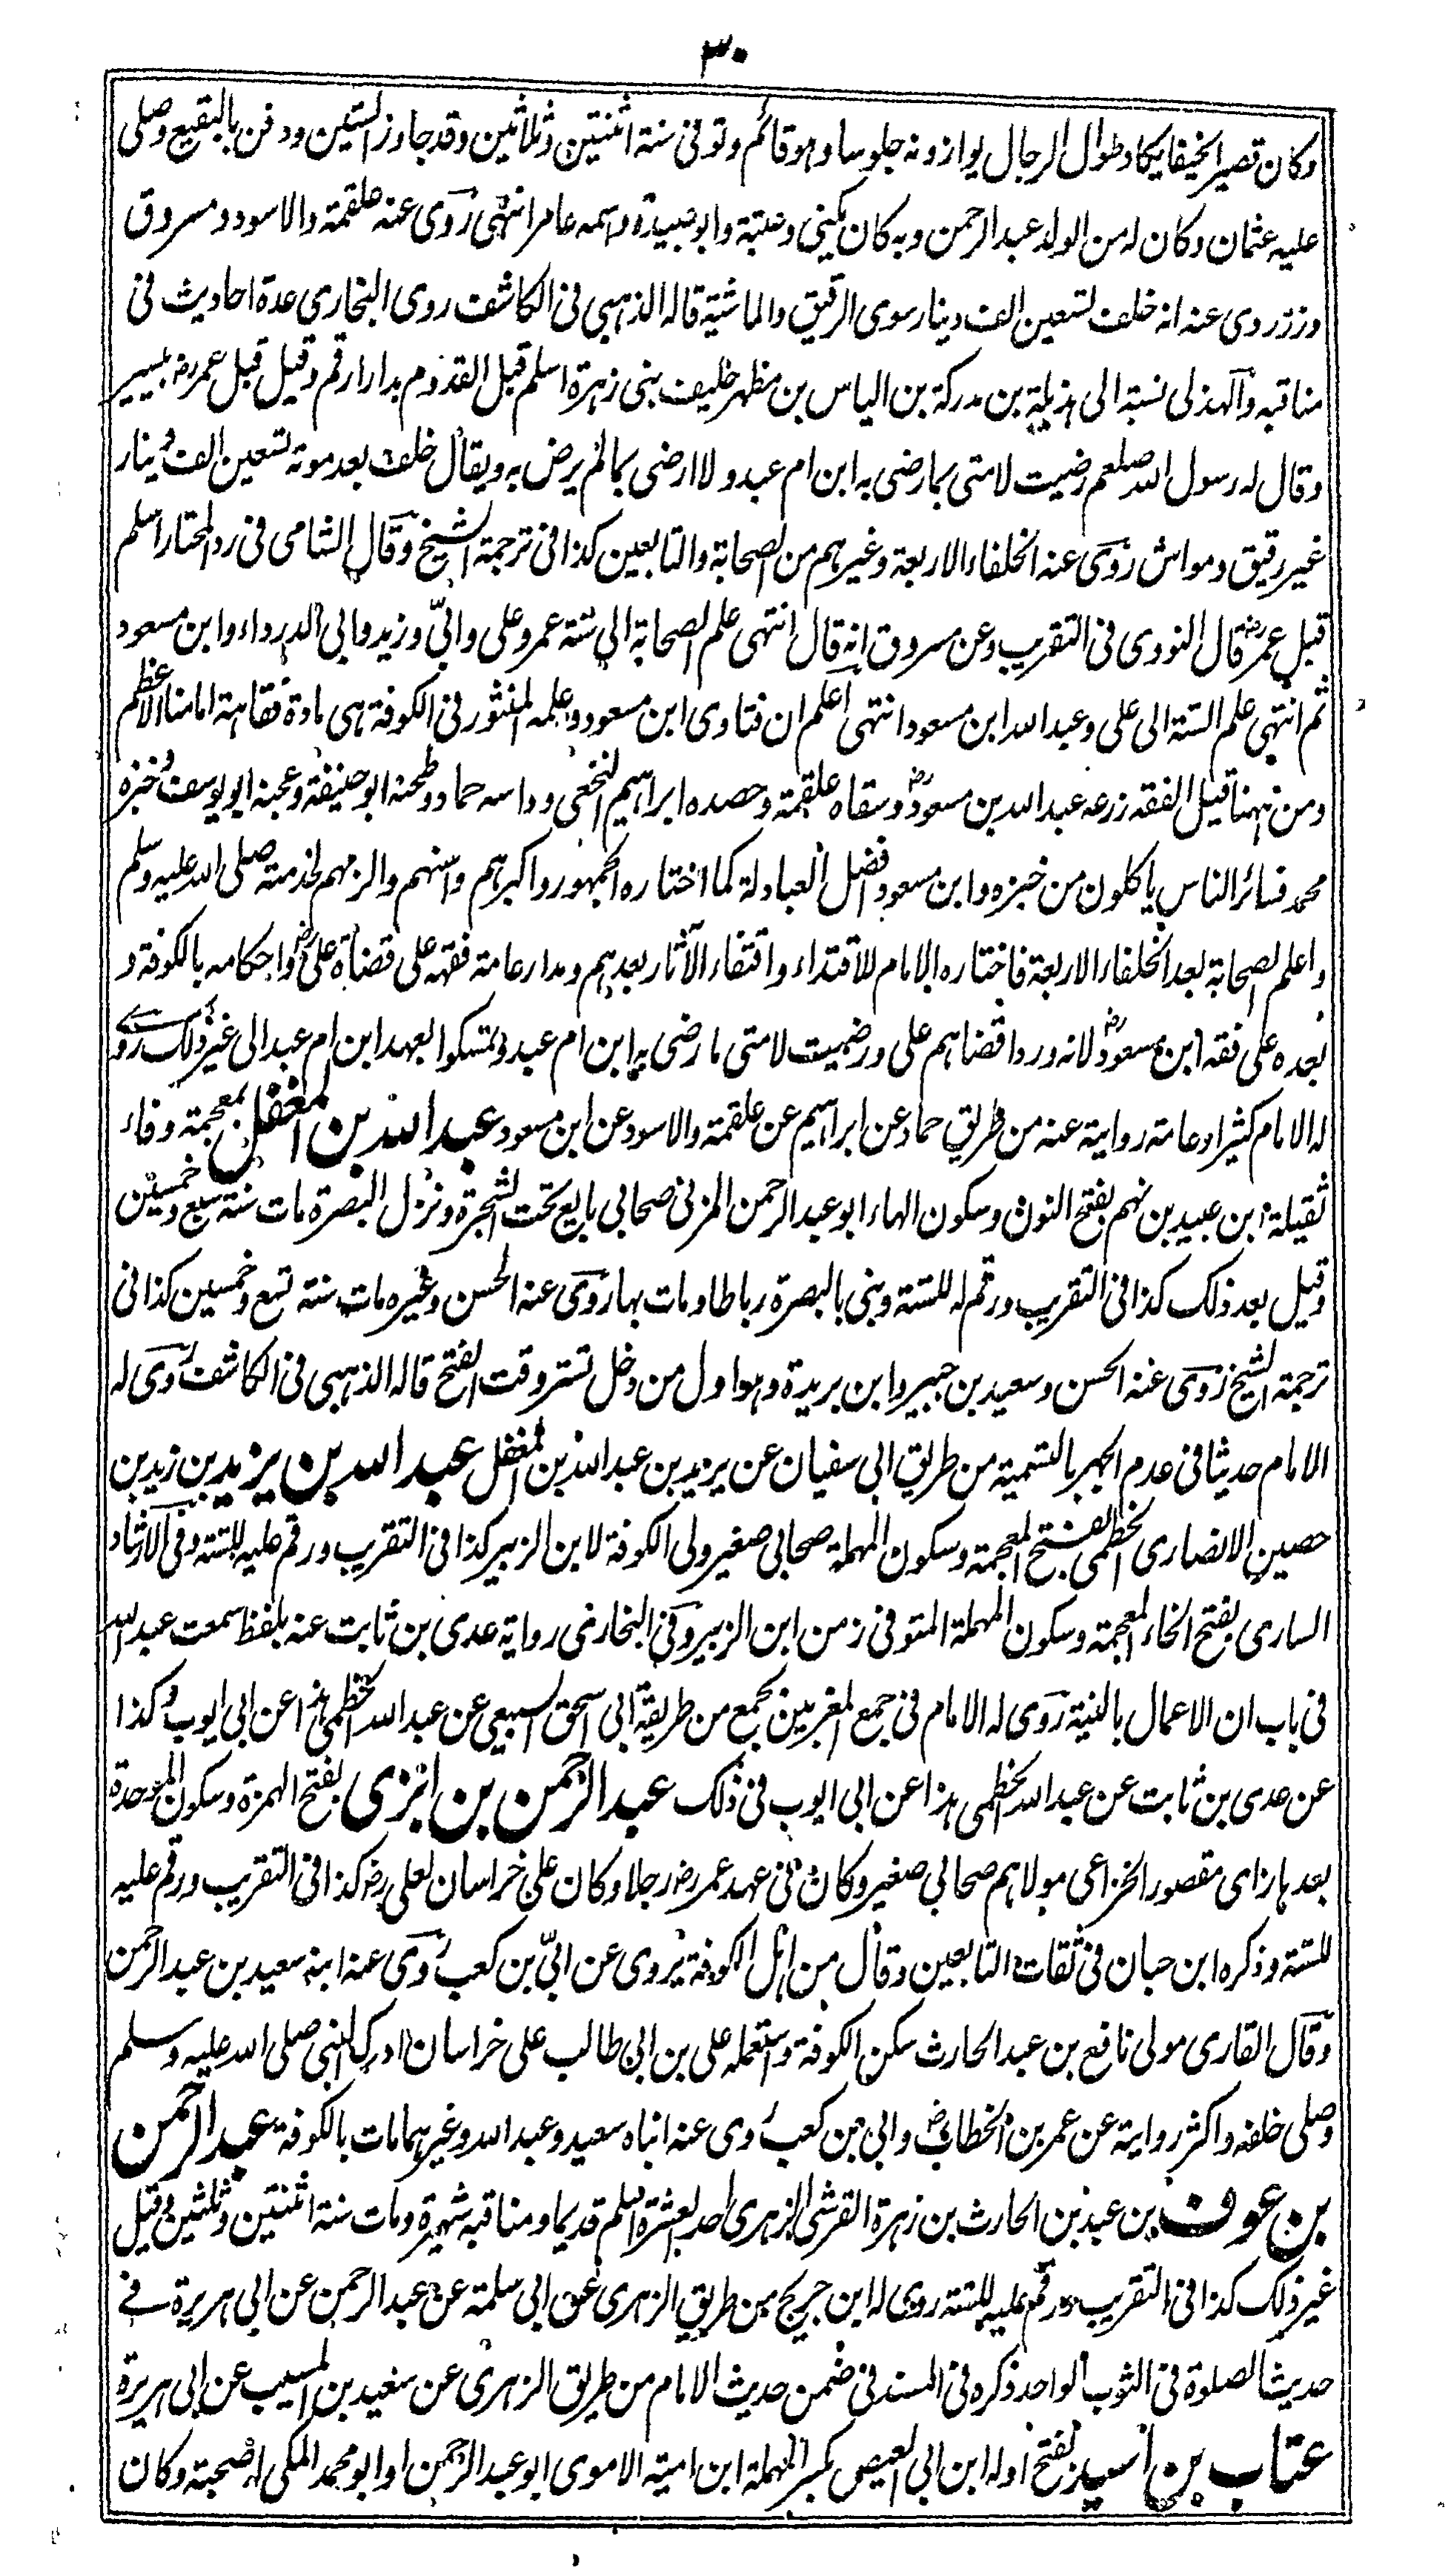 ٣٠
وكان قصيرا نحيفا يكاد طوال الرجال يوازونه جلوسا وهو قائم وتوفى سنة اثنتين وثلاثين وقد جاوز الستين ودفن بالبقيع وصلى
عليه عثمان وكان له من الولد عبد الرحمن وبه كان يكنى وعتبة وابو عبيدة واسمه عامر انتهى روى عنه علقمة والاسود ومسروق
وزر روى عنه انه خلف تسعين الف دينار سوى الرقيق والماشية قاله الذهبى فى الكاشف روى البخارى عدة احاديث فى
مناقبه والهذلى نسبة الى هذيلة بن مدركة بن الياس بن مظهر حليف بنى زهرة اسلم قبل القدوم بدار ارقم وقيل قبل عمر رض بيسير
وقال له رسول الله صلعم رضيت لامتى بما رضى به ابن ام عبد ولا ارضى بما لم يرض به ويقال خلف بعد موته تسعين الف دينار
غير رقيق ومواش روى عنه الخلفاء الاربعة وغيرهم من الصحابة والتابعين كذا فى ترجمة الشيخ وقال الشامى فى رد المحتار اسلم
قبل عمر رض قال النووى فى التقريب وعن مسروق انه قال انتهى علم الصحابة الى ستة عمر وعلى وابىّ وزيد وابى الدرداء وابن مسعود
ثم انتهى علم الستة الى على وعبد الله ابن مسعود انتهى اعلم ان فتاوى ابن مسعود وعلمه المنثور فى الكوفة هى مادة فقاهة امامنا الاعظم
ومن ههنا قيل الفقه زرعه عبد الله بن مسعود رض وسقاه علقمة وحصده ابراهيم النخعى وداسه حماد وطحنه ابو حنيفة وعجنه ابو يوسف وخبزه
محمد فسائر الناس ياكلون من خبزه وابن مسعود افضل العبادلة كما اختاره الجمهور واكبرهم واسنهم والزمهم لخدمته صلى الله عليه وسلم
واعلم الصحابة بعد الخلفاء الاربعة فاختاره الامام للاقتداء واقتفاء الآثار بعدهم ومدار عامة فقهه على قضاة على رض واحكامه بالكوفة و
بعده على فقه ابن مسعود رض لانه ورد اقضاهم على ورضيت لامتى ما رضى به ابن ام عبد وتمسكوا بعهد ابن ام عبد الى غير ذلك روے
له الامام كثيرا وعامة رواية عنه من طريق حماد عن ابراهيم عن علقمة والاسود عن ابن مسعود عبد الله بن المغفل بمعجمة وفاء
ثقيلة ابن عبيد بن نهم بفتح النون وسكون الهاء ابو عبد الرحمن المزنى صحابى بايع تحت الشجرة ونزل البصرة مات سنة سبع وخمسين
وقيل بعد ذلك كذا فى التقريب ورقم له للستة وبنى بالبصرة رباطا ومات بها روى عنه الحسن وغيره مات سنة تسع وخمسين كذا فى
ترجمة الشيخ روى عنه الحسن وسعيد بن جبير وابن بريدة وهو اول من دخل تستر وقت الفتح قاله الذهبى فى الكاشف روى له
الامام حديثا فى عدم الجهر بالتسمية من طريق ابى سفيان عن يزيد بن عبد الله بن المغفل عبد الله بن يزيد بن زيد بن
حصين الانصارى الخطمى بفتح المعجمة وسكون المهملة صحابى صغير ولى الكوفة لابن الزبير كذا فى التقريب ورقم عليه للستة وفى الارشاد
السارى بفتح الخاء المعجمة وسكون المهملة المتوفى زمن ابن الزبير وفى البخارى رواية عدى بن ثابت عنه بلفظ سمعت عبد الله
فى باب ان الاعمال بالنية روى له الامام فى جمع المغربين بجمع من طريقة ابى اسحق السبيعى عن عبد الله الخطمى هذا عن ابى ايوب وكذا
عن عدى بن ثابت عن عبد الله الخطمى هذا عن ابى ايوب فى ذلك عبد الرحمن بن ابزى بفتح الهمزة وسكون الموحدة
بعدها زاى مقصور الخزاعى مولاهم صحابى صغير وكان فى عهد عمر رض رجلا وكان على خراسان لعلى رض كذا فى التقريب ورقم عليه
للستة وذكره ابن حبان فى ثقات التابعين وقال من اهل الكوفة يروى عن ابىّ بن كعب روى عنه ابنه سعيد بن عبد الرحمن
وقال القارى مولى نافع بن عبد الحارث سكن الكوفة واستعمله على بن ابى طالب على خراسان ادرك النبى صلى الله عليه وسلم
وصلى خلفه واكثر رواية عن عمر بن الخطاب رض وابى بن كعب روى عنه ابناه سعيد وعبد الله وغيرهما مات بالكوفة عبد الرحمن
بن عوف بن عبد بن الحارث بن زهرة القرشى الزهرى احد العشرة اسلم قديما ومناقبه شهيرة ومات سنة اثنتين وثلثين وقيل
غير ذلك كذا فى التقريب ورقم عليه للستة روى له ابن جريج من طريق الزهرى عن ابى سلمة عن عبد الرحمن عن ابى هريرة فے
حديث الصلوة فى الثوب الواحد ذكره فى المسند فى ضمن حديث الامام من طريق الزهرى عن سعيد بن المسيب عن ابى هريرة
عتاب بن اسيد بفتح اوله ابن ابى العيص بكسر المهملة ابن امية الاموى ابو عبد الرحمن او ابو محمد المكى له صحبة وكان